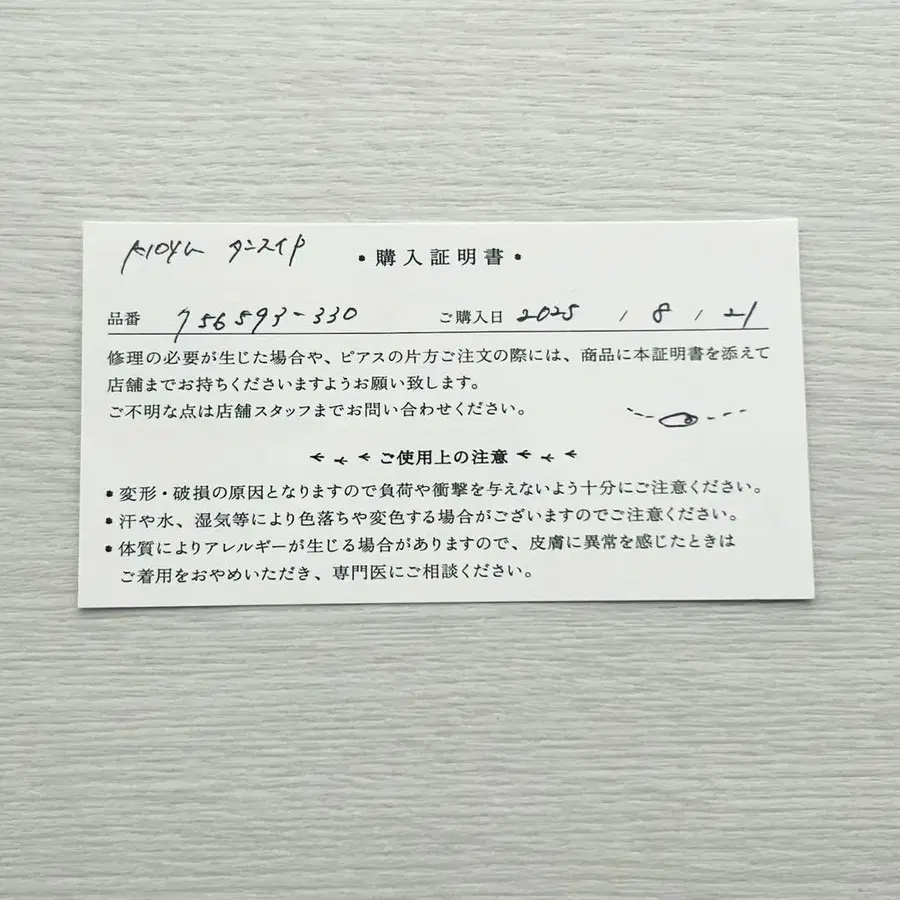 K10YG タンスイP
• 購入証明書 •
品番 756593-330 ご購入日 2025 / 8 / 21
修理の必要が生じた場合や、ピアスの片方ご注文の際には、商品に本証明書を添えて
店舗までお持ちくださいますようお願い致します。
ご不明な点は店舗スタッフまでお問い合わせください。
ご使用上の注意
• 変形・破損の原因となりますので負荷や衝撃を与えないよう十分にご注意ください。
• 汗や水、湿気等により色落ちや変色する場合がございますのでご注意ください。
• 体質によりアレルギーが生じる場合がありますので、皮膚に異常を感じたときは
ご着用をおやめいただき、専門医にご相談ください。